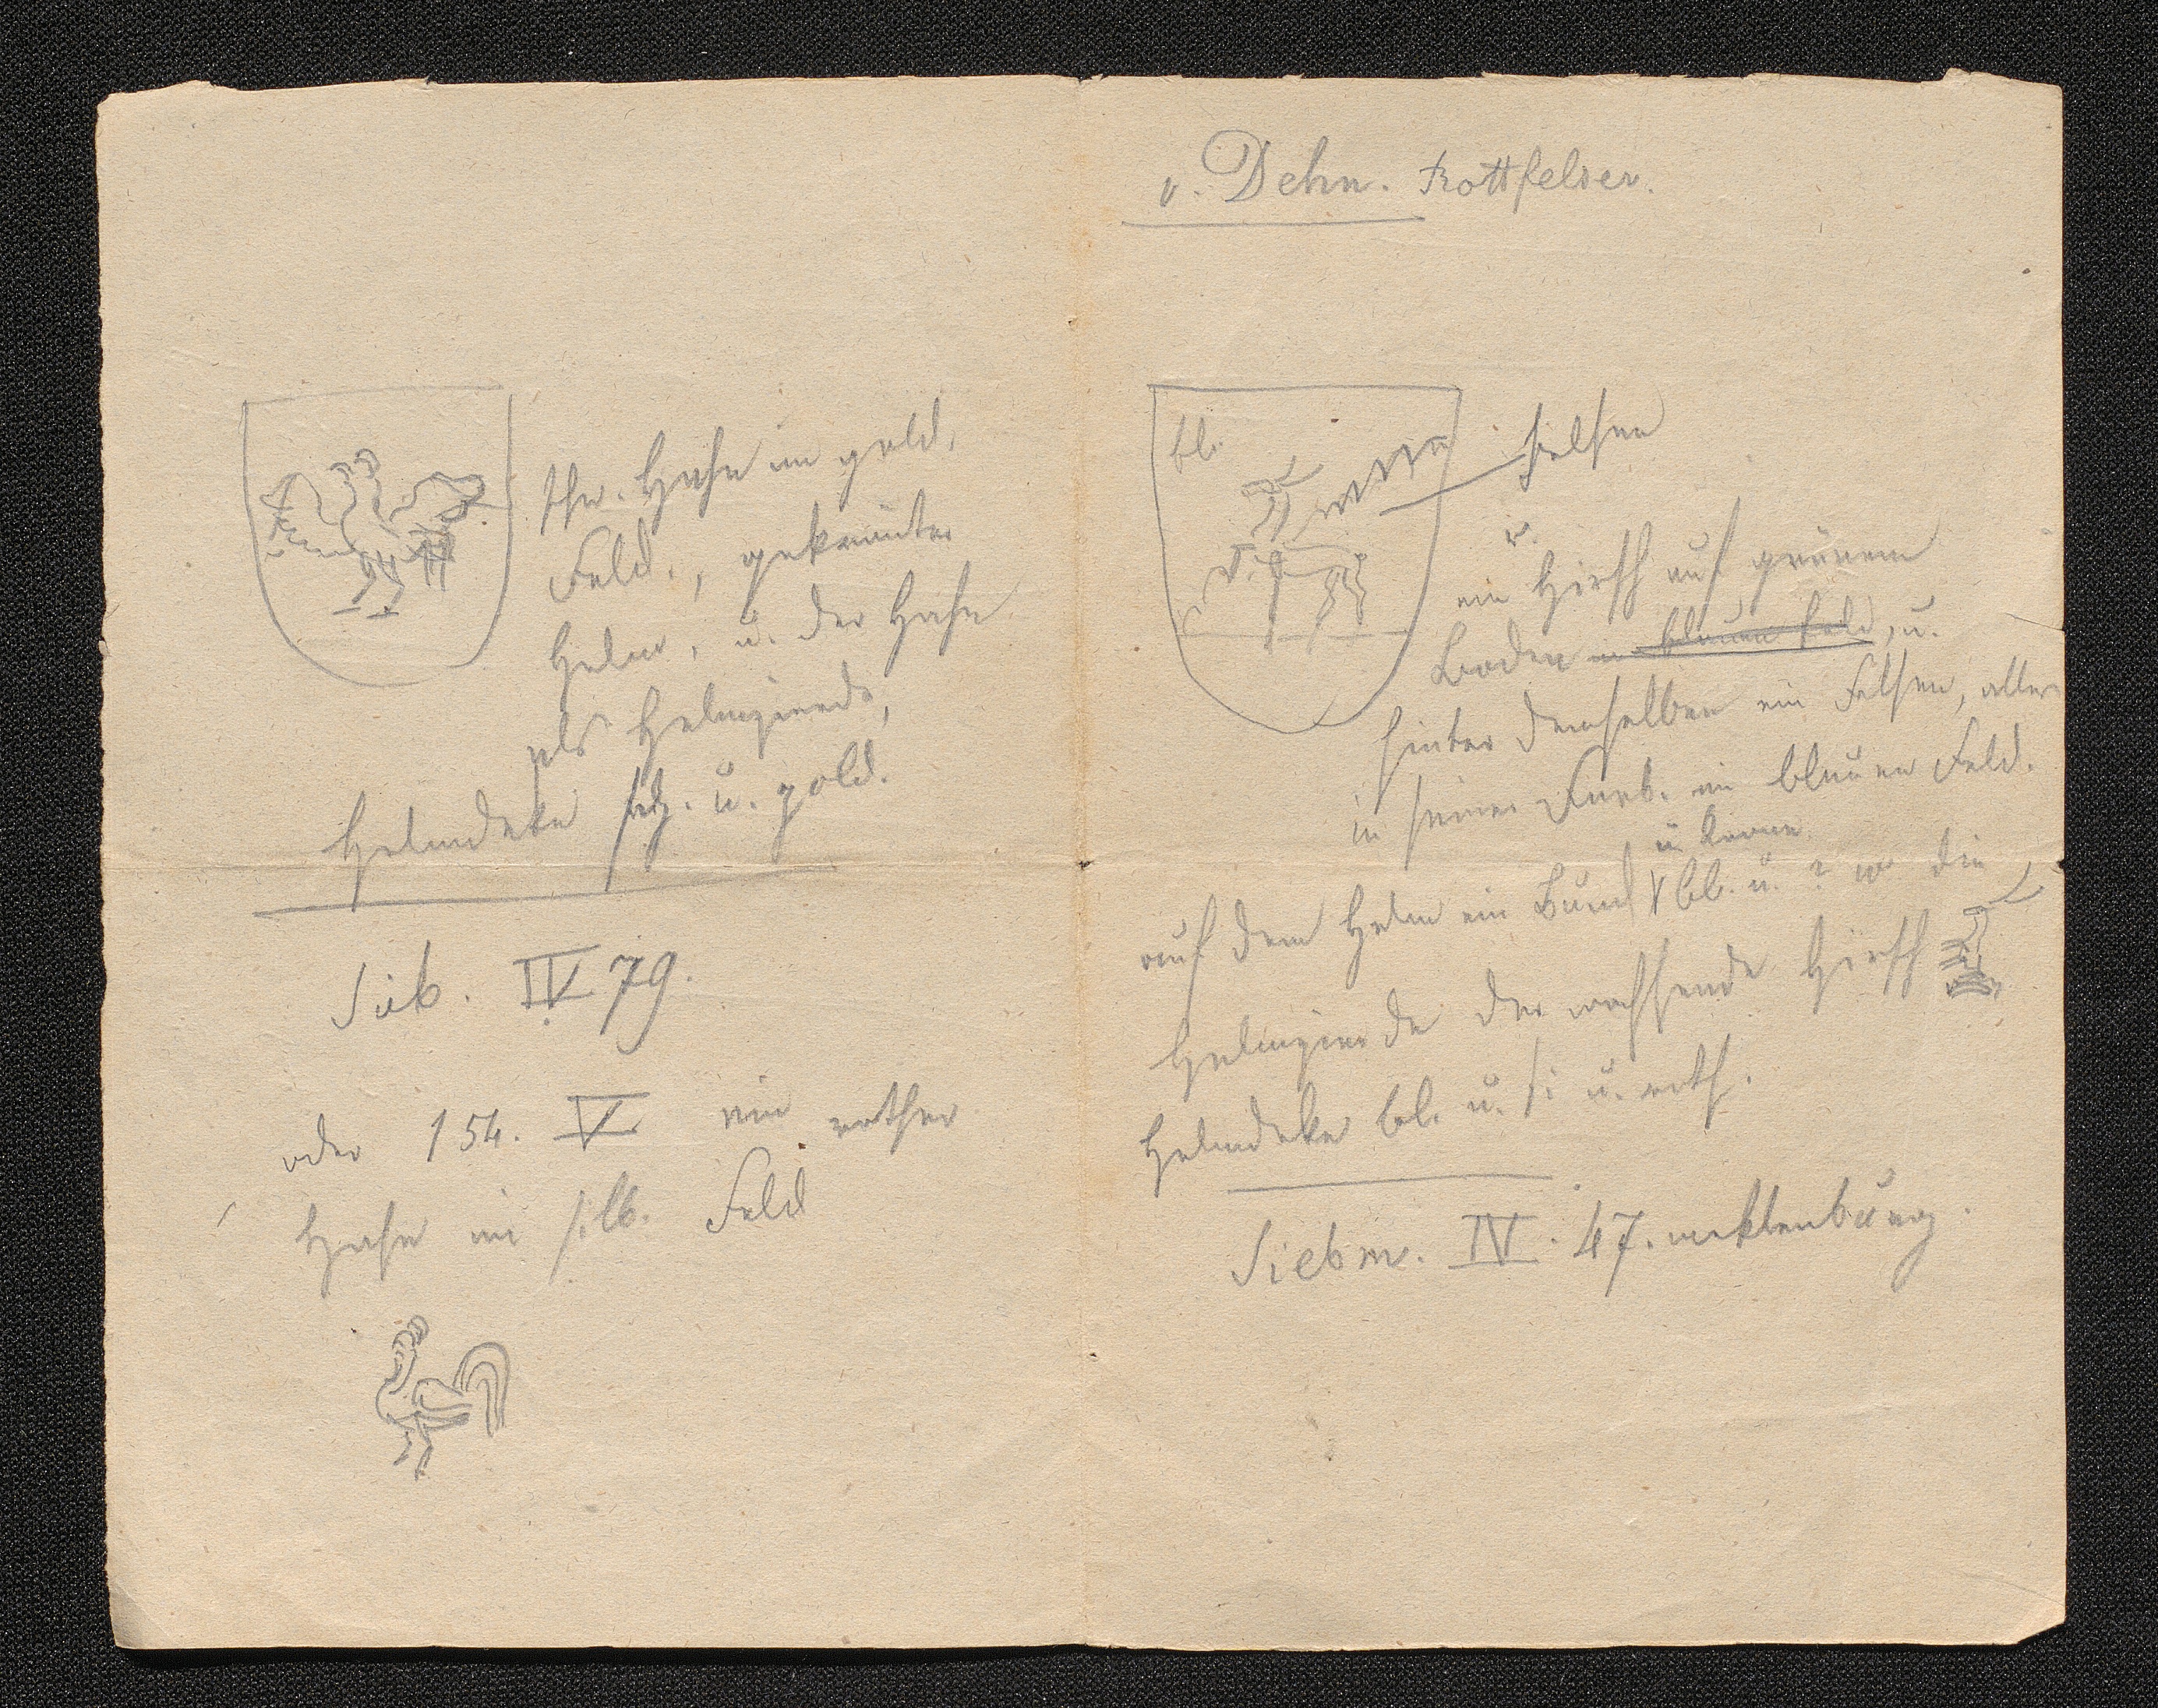 schw. Hahn im gold.
Feld., gekrönter
Helm, u. der Hahn
als Helmzierde,
Helmdeke sch. u. gold.
Sieb. IV 79.
oder 154. V ein rother
Hahn im silb. Feld
v. Dehn. Rottfelser.
bl.
Felsen
w.
ein Hirsch auf grünem
Boden im blauen Feld, u.
hinter demselben ein Felsen, alles
in seiner Farb. im blauen Feld.
u Krone
auf dem Helm ein Bund bl. u. ? w die
Helmzierde der wachsende Hirsch
Helmdeke bl. u. s: u. roth.
Siebm. IV. 47. meklenburg.